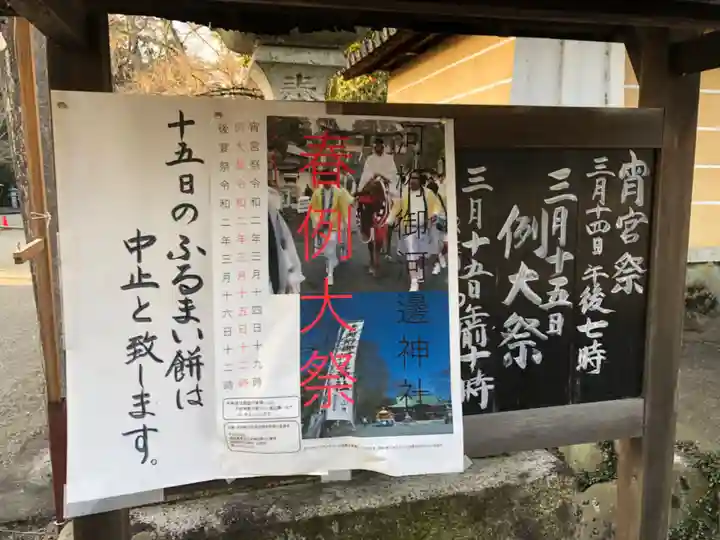 宵宮祭
三月十四日 午後七時
三月十五日
例大祭
三月十五日午前十時
河桁御河邊神社
春例大祭
宵宮祭令和二年三月十四日十九時
例大祭令和二年三月十五日十二時
後宴祭令和二年三月十六日十二時
十五日のふるまい餅は
中止と致します。